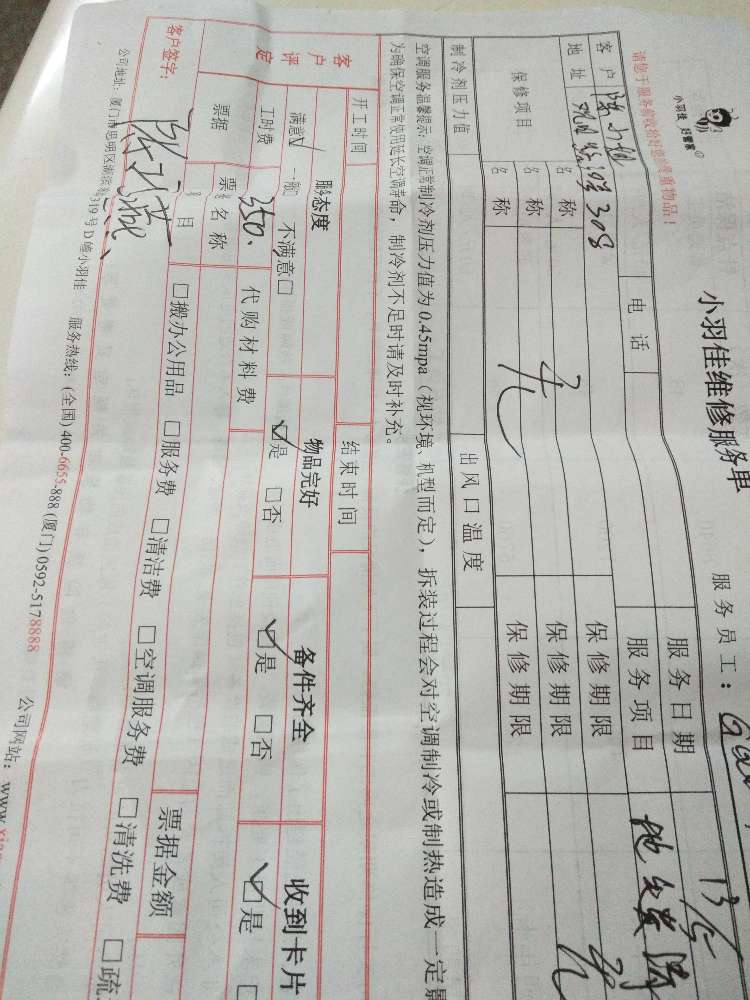 小羽佳 好管家
小羽佳维修服务单
服务员工：
请您于服务前收拾好您的贵重物品！
服务日期 13/5
客户
电话
服务项目
地址 308
保修期限
保修项目
名称
保修期限
名称 无
保修期限
名称
制冷剂压力值
出风口温度
空调服务温馨提示：空调正常制冷剂压力值为0.45mpa（视环境、机型而定），拆装过程会对空调制冷或制热造成一定
为确保空调正常使用延长空调寿命，制冷剂不足时请及时补充。
开工时间
结束时间
客户评定
服务态度
物品完好
备件齐全
收到卡片
满意☑ 一般 不满意□
☑是 □否
☑是 □否
☑是
工时费 350.
代购材料费
票据
名称
票据金额
目
□搬办公用品 □服务费 □清洁费 □空调服务费 □清洗费 □疏
客户签字：
公司地址：厦门市思明区 319号D幢小羽佳 服务热线：(全国) 400-6655-888 (厦门) 0592-5178888 公司网站：www.